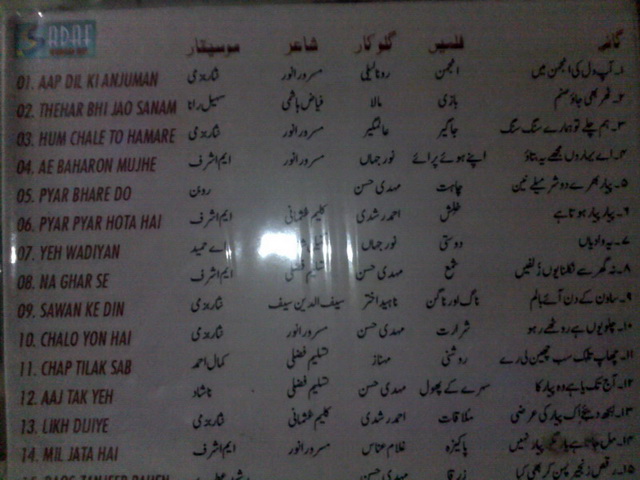 SADAF
گانے فلمیں گلوکار شاعر موسیقار
01. AAP DIL KI ANJUMAN نثار بزمی مسرور انور رونا لیلیٰ انجمن ۱۔ آپ دل کی انجمن میں
02. THEHAR BHI JAO SANAM سہیل رانا فیاض ہاشمی مالا بازی ۲۔ ٹھہر بھی جاؤ صنم
03. HUM CHALE TO HAMARE نثار بزمی مسرور انور عالمگیر جاگیر ۳۔ ہم چلے تو ہمارے سنگ سنگ
04. AE BAHARON MUJHE ایم اشرف مسرور انور نور جہاں اپنے ہوئے پرائے ۴۔ اے بہاروں مجھے یہ بتاؤ
05. PYAR BHARE DO روبن مہدی حسن چاہت ۵۔ پیار بھرے دو شرمیلے نین
06. PYAR PYAR HOTA HAI ایم اشرف کلیم عثمانی احمد رشدی خلش ۶۔ پیار پیار ہوتا ہے
07. YEH WADIYAN اے حمید نور جہاں دوستی ۷۔ یہ وادیاں
08. NA GHAR SE ایم اشرف تسلیم فضلی مہدی حسن شمع ۸۔ نہ گھر سے نکلنا یوں زلفیں
09. SAWAN KE DIN نثار بزمی سیف الدین سیف ناہید اختر ناگ اور ناگن ۹۔ ساون کے دن آئے بالم
10. CHALO YON HAI نثار بزمی مسرور انور مہدی حسن شرارت ۱۰۔ چلو یوں ہی روٹھے رہو
11. CHAP TILAK SAB کمال احمد تسلیم فضلی مہناز روشنی ۱۱۔ چھاپ تلک سب چھین لی رے
12. AAJ TAK YEH ناشاد تسلیم فضلی مہدی حسن سرے کے پھول ۱۲۔ آج تک یاد ہے وہ پیار کا
13. LIKH DIJIYE نثار بزمی کلیم عثمانی احمد رشدی ملاقات ۱۳۔ لکھ دیجئے اک پیار کی عرضی
14. MIL JATA HAI ایم اشرف مسرور انور غلام عباس پاکیزہ ۱۴۔ مل جاتا ہے پیار نہیں
مہدی حسن زرقا ۱۵۔ رقص زنجیر پہن کر بھی کیا